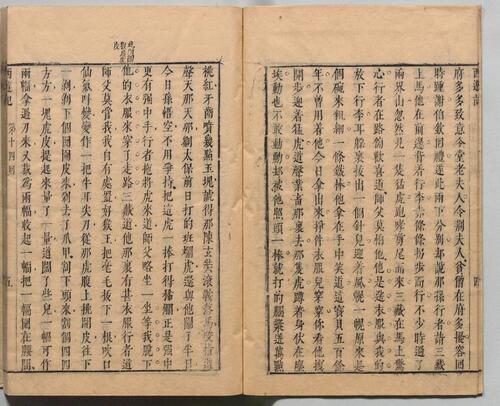 西遊記
許多多致意令堂老夫人令荊夫人貧僧在府多擾容回
時踵謝伯欽回禮遂此兩下分別却說那孫行者請三藏
上馬他在前邊背着行李赤條條拐步而行不少時過了
兩界山忽然見一隻猛虎咆哮剪尾而來三藏在馬上驚
心行者在路傍歡喜道師父莫怕他他是送衣服與我的
放下行李耳躲裏拔出一個針兒迎着風幌一幌原來是
個碗來粗細一條鐵棒他拿在手中笑道這寶貝五百餘
年不曾用着他今日拿出來掙件衣服兒穿穿你看他拽
開步迎着猛虎道聲業畜那裏去那隻虎蹲着身伏在塵
埃動也不敢動動却被他照頭一棒就打的腦漿迸萬點
桃紅牙齒噴幾點玉塊諕得那陳玄奘滾鞍落馬咬指道
聲天那天那劉太保前日打的班斕虎還與他鬪了半日
今日孫悟空不用爭持把這虎一棒打得稀爛正是強中
更有強中手行者拖將虎來道師父略坐一坐等我脫下
他的衣服來穿了走路三藏道他那裏有甚衣服行者道
師父莫管我我自有處置好猴王把毫毛拔下一根吹口
仙氣叫變變作一把牛耳尖刀從那虎腹上挑開皮往下
一剝剝下個囫圇皮來剁去了爪甲割下頭來割個四四
方方一塊虎皮提起來量了一量道闊了些兒一幅可作
兩幅拿過刀來又裁為兩幅收起一幅把一幅圍在腰間
西遊記 第十四回 五